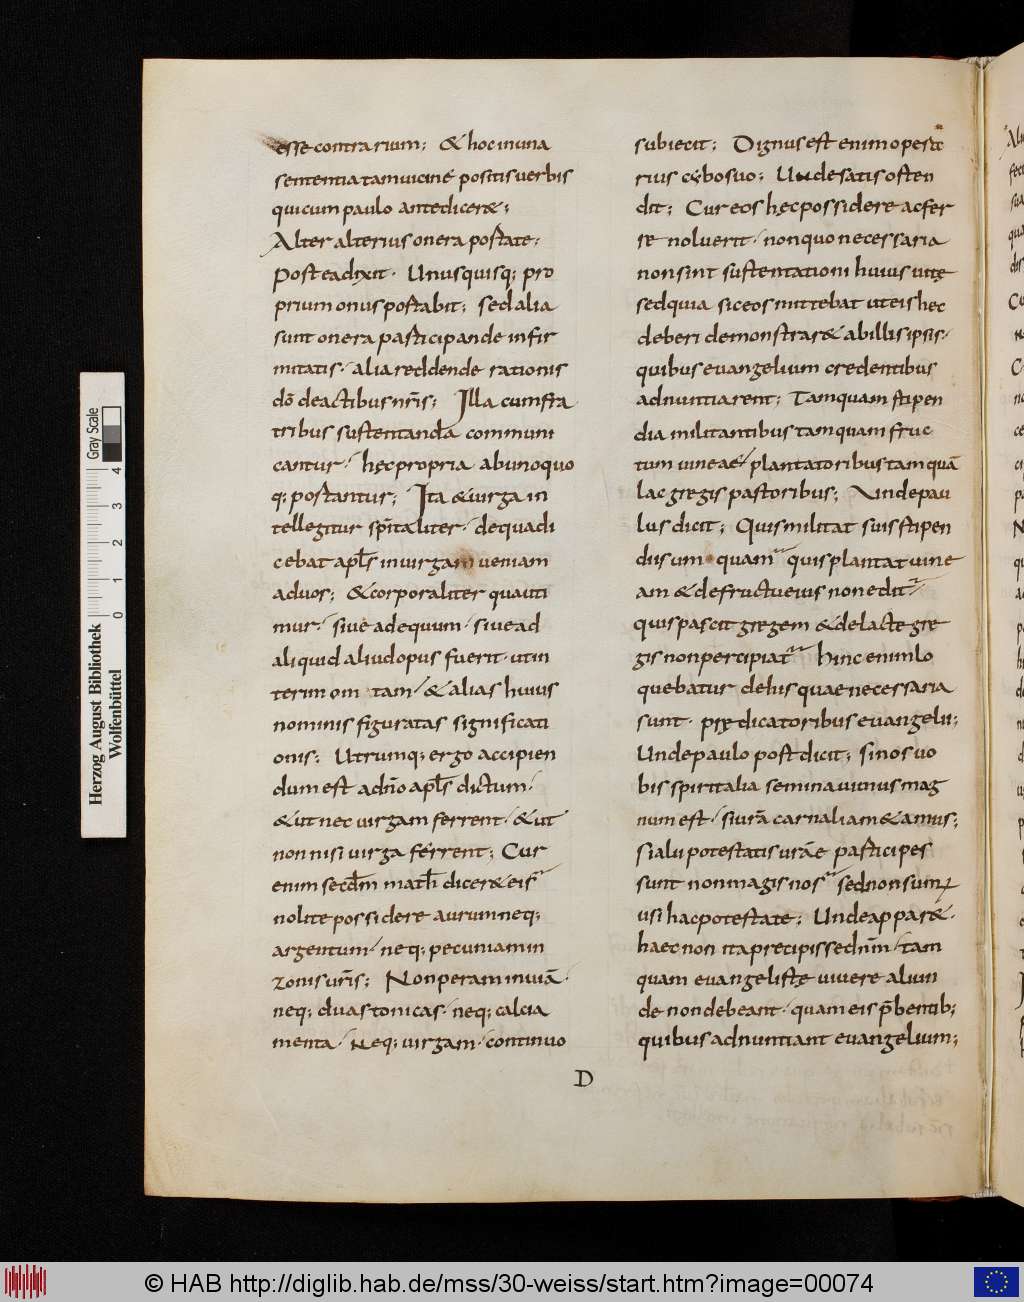 esse contrarium; & hoc inuna
sententia tam uicinę positis uerbis
qui cum paulo ante diceret;
Alter alterius onera portate;
Postea dixit. Unusquisq; pro
prium onus portabit; sed alia
sunt onera participande infir
mitatis. alia reddende rationis
dō de actibus nr̄is; Illa cum fra
tribus sustentanda communi
cantur. hec propria ab unoquo
q; portantur; Ita & uirga in
tellegitur sp̄italiter. de qua di
cebat apl̄s in uirga ueniam
ad uos; & corporaliter qua uti
mur. siue ad equum. siue ad
aliquid aliud opus fuerit. ut in
terim om tam & alias huius
nominis figuratas significati
onis; Utrumq; ergo accipien
dum est a dn̄o apl̄s dictum.
& ut nec uirgam ferrent. & ut
non nisi uirga ferrent; Cur
enim secd̄m math̄ diceret eis
nolite possidere aurum neq;
argentum. neq; pecuniam in
zonis ur̄is; Non peram in uiā.
neq; duas tonicas. neq; calcia
menta. Neq; uirgam. continuo
D
subiecit; Dignus est enim opera
rius cybo suo; Unde satis osten
dit; Cur eos hęc possidere ac fer
re noluerit. non quo necessaria
non sint sustentationi huius uitę
sed quia sic eos mittebat ut eis hec
deberi demonstraret ab illis ipsis.
quibus euangelium credentibus
adnuntiarent; Tamquam stipen
dia militantibus tamquam fruc
tum uineae plantatoribus tam quā
lac gregis pastoribus; Unde pau
lus dicit; Quis militat suis stipen
diis umquam quis plantat uine
am & de fructu eius non edit
quis pascit gregem & de lacte gre
gis non percipiat hinc enim lo
quebatur de his quae necessaria
sunt. prędicatoribus euangelii;
Unde paulo post dicit; si nos uo
bis spiritalia seminauimus mag
num est. si ur̄a carnalia metamus;
si alii potestatis ur̄ae participes
sunt non magis nos sed non sumus
usi hac potestate; Unde apparet.
haec non ita precipisse dn̄m. tam
quam euangeliste uiuere aliun
de non debeant. quam eis p̄bentib;
quibus adnuntiant euangelium;
Herzog August Bibliothek
Wolfenbüttel
Gray Scale
0 1 2 3 4
© HAB http://diglib.hab.de/mss/30-weiss/start.htm?image=00074